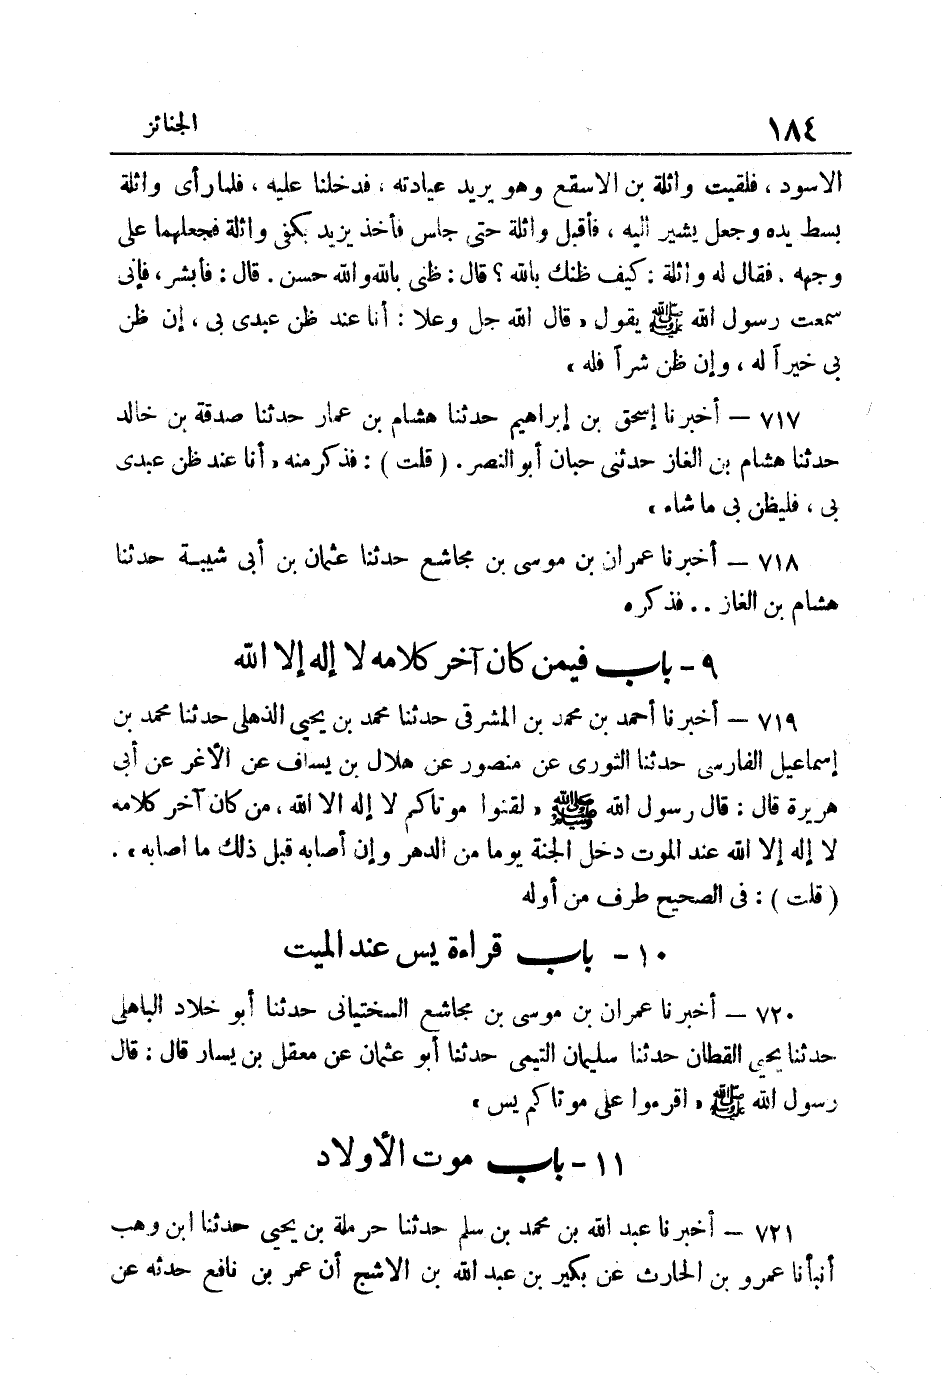 ١٨٤ الجنائز
الاسود ، فلقيت واثلة بن الاسقع وهو يريد عيادته ، فدخلنا عليه ، فلما رأى واثلة
بسط يده وجعل يشير اليه ، فأقبل واثلة حتى جلس فأخذ يزيد بكفى واثلة فجعلهما على
وجهه . فقال له واثلة : كيف ظنك بالله ؟ قال : ظنى بالله والله حسن . قال : فأبشر ، فإنى
سمعت رسول الله ﷺ يقول « قال الله جل وعلا : أنا عند ظن عبدى بى ، إن ظن
بى خيراً له ، وإن ظن شراً فله »
٧١٧ – أخبرنا إسحق بن إبراهيم حدثنا هشام بن عمار حدثنا صدقة بن خالد
حدثنا هشام بن الغاز حدثنى حبان أبو النصر . ( قلت ) : فذكر منه « أنا عند ظن عبدى
بى ، فليظن بى ما شاء »
٧١٨ – أخبرنا عمران بن موسى بن مجاشع حدثنا عثمان بن أبى شيبة حدثنا
هشام بن الغاز . . فذكره
٩ - باب فيمن كان آخر كلامه لا إله إلا الله
٧١٩ – أخبرنا أحمد بن محمد بن المشرقى حدثنا محمد بن يحيى الذهلى حدثنا محمد بن
إسماعيل الفارسى حدثنا الثورى عن منصور عن هلال بن يساف عن الأغر عن أبى
هريرة قال : قال رسول الله ﷺ « لقنوا موتاكم لا إله الا الله ، من كان آخر كلامه
لا إله إلا الله عند الموت دخل الجنة يوما من الدهر وإن أصابه قبل ذلك ما اصابه » .
( قلت ) : فى الصحيح طرف من أوله
١٠ - باب قراءة يس عند الميت
٧٢٠ – أخبرنا عمران بن موسى بن مجاشع السختيانى حدثنا أبو خلاد الباهلى
حدثنا يحيى القطان حدثنا سليمان التيمى حدثنا أبو عثمان عن معقل بن يسار قال : قال
رسول الله ﷺ « اقرءوا على موتاكم يس »
١١ - باب موت الأولاد
٧٢١ – أخبرنا عبد الله بن محمد بن سلم حدثنا حرملة بن يحيى حدثنا ابن وهب
أنبأنا عمرو بن الحارث عن بكير بن عبد الله بن الاشج أن عمر بن نافع حدثه عن